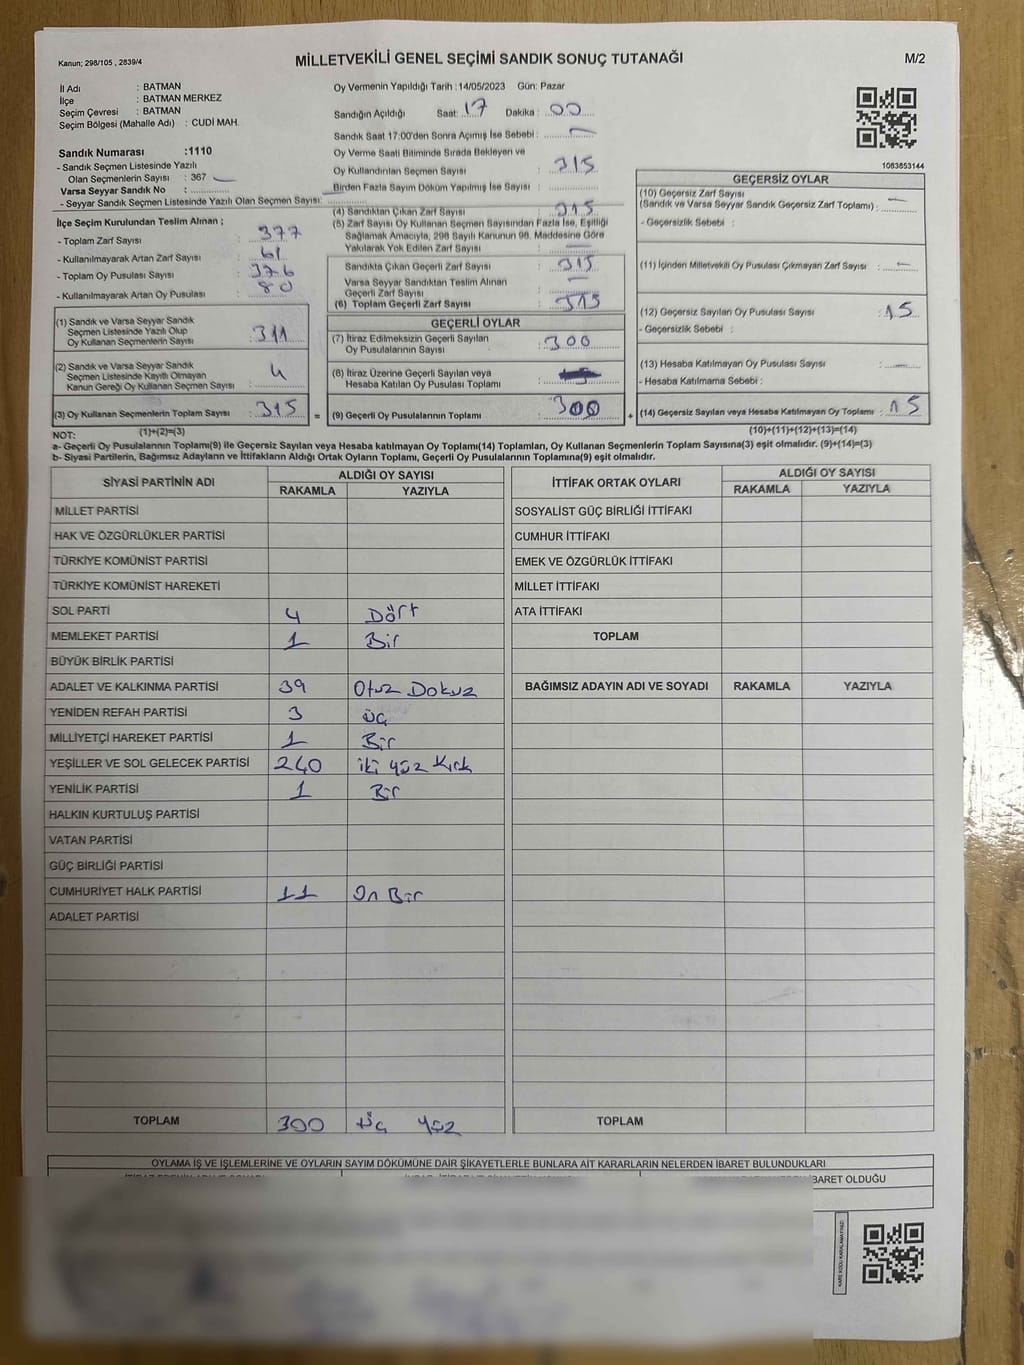 Kanun; 298/105 , 2839/4
MİLLETVEKİLİ GENEL SEÇİMİ SANDIK SONUÇ TUTANAĞI
M/2
İl Adı : BATMAN
İlçe : BATMAN MERKEZ
Seçim Çevresi : BATMAN
Seçim Bölgesi (Mahalle Adı) : CUDİ MAH.
Sandık Numarası :1110
- Sandık Seçmen Listesinde Yazılı
Olan Seçmenlerin Sayısı : 367
Varsa Seyyar Sandık No :
- Seyyar Sandık Seçmen Listesinde Yazılı Olan Seçmen Sayısı:
İlçe Seçim Kurulundan Teslim Alınan ;
- Toplam Zarf Sayısı : 377
- Kullanılmayarak Artan Zarf Sayısı : 61
- Toplam Oy Pusulası Sayısı : 376
- Kullanılmayarak Artan Oy Pusulası : 80
(1) Sandık ve Varsa Seyyar Sandık
Seçmen Listesinde Yazılı Olup
Oy Kullanan Seçmenlerin Sayısı : 311
(2) Sandık ve Varsa Seyyar Sandık
Seçmen Listesinde Kayıtlı Olmayan
Kanun Gereği Oy Kullanan Seçmen Sayısı : 4
(3) Oy Kullanan Seçmenlerin Toplam Sayısı : 315
(1)+(2)=(3)
Oy Vermenin Yapıldığı Tarih : 14/05/2023 Gün: Pazar
Sandığın Açıldığı Saat: 17 Dakika : 00
Sandık Saat 17:00'den Sonra Açımış İse Sebebi : —
Oy Verme Saati Bitiminde Sırada Bekleyen ve
Oy Kullandırılan Seçmen Sayısı : 315
Birden Fazla Sayım Döküm Yapılmış İse Sayısı :
(4) Sandıktan Çıkan Zarf Sayısı : 315
(5) Zarf Sayısı Oy Kullanan Seçmen Sayısından Fazla İse, Eşitliği
Sağlamak Amacıyla, 298 Sayılı Kanunun 98. Maddesine Göre
Yakılarak Yok Edilen Zarf Sayısı : —
Sandıkta Çıkan Geçerli Zarf Sayısı : 315
Varsa Seyyar Sandıktan Teslim Alınan
Geçerli Zarf Sayısı : —
(6) Toplam Geçerli Zarf Sayısı : 315
GEÇERLİ OYLAR
(7) İtiraz Edilmeksizin Geçerli Sayılan
Oy Pusulalarının Sayısı : 300
(8) İtiraz Üzerine Geçerli Sayılan veya
Hesaba Katılan Oy Pusulası Toplamı :
= (9) Geçerli Oy Pusulalarının Toplamı : 300
1083853144
GEÇERSİZ OYLAR
(10) Geçersiz Zarf Sayısı
(Sandık ve Varsa Seyyar Sandık Geçersiz Zarf Toplamı) : —
- Geçersizlik Sebebi :
(11) İçinden Milletvekili Oy Pusulası Çıkmayan Zarf Sayısı : —
(12) Geçersiz Sayılan Oy Pusulası Sayısı : 15
- Geçersizlik Sebebi :
(13) Hesaba Katılmayan Oy Pusulası Sayısı : —
- Hesaba Katılmama Sebebi :
+ (14) Geçersiz Sayılan veya Hesaba Katılmayan Oy Toplamı : 15
(10)+(11)+(12)+(13)=(14)
NOT:
a- Geçerli Oy Pusulalarının Toplamı(9) ile Geçersiz Sayılan veya Hesaba katılmayan Oy Toplamı(14) Toplamları, Oy Kullanan Seçmenlerin Toplam Sayısına(3) eşit olmalıdır. (9)+(14)=(3)
b- Siyasi Partilerin, Bağımsız Adayların ve İttifakların Aldığı Ortak Oyların Toplamı, Geçerli Oy Pusulalarının Toplamına(9) eşit olmalıdır.
SİYASİ PARTİNİN ADI ALDIĞI OY SAYISI
RAKAMLA YAZIYLA
MİLLET PARTİSİ
HAK VE ÖZGÜRLÜKLER PARTİSİ
TÜRKİYE KOMÜNİST PARTİSİ
TÜRKİYE KOMÜNİST HAREKETİ
SOL PARTİ 4 Dört
MEMLEKET PARTİSİ 1 Bir
BÜYÜK BİRLİK PARTİSİ
ADALET VE KALKINMA PARTİSİ 39 Otuz Dokuz
YENİDEN REFAH PARTİSİ 3 üç
MİLLİYETÇİ HAREKET PARTİSİ 1 Bir
YEŞİLLER VE SOL GELECEK PARTİSİ 240 iki yüz Kırk
YENİLİK PARTİSİ 1 Bir
HALKIN KURTULUŞ PARTİSİ
VATAN PARTİSİ
GÜÇ BİRLİĞİ PARTİSİ
CUMHURİYET HALK PARTİSİ 11 On Bir
ADALET PARTİSİ
TOPLAM 300 Üç yüz
İTTİFAK ORTAK OYLARI ALDIĞI OY SAYISI
RAKAMLA YAZIYLA
SOSYALİST GÜÇ BİRLİĞİ İTTİFAKI
CUMHUR İTTİFAKI
EMEK VE ÖZGÜRLÜK İTTİFAKI
MİLLET İTTİFAKI
ATA İTTİFAKI
TOPLAM
BAĞIMSIZ ADAYIN ADI VE SOYADI RAKAMLA YAZIYLA
TOPLAM
OYLAMA İŞ VE İŞLEMLERİNE VE OYLARIN SAYIM DÖKÜMÜNE DAİR ŞİKAYETLERLE BUNLARA AİT KARARLARIN NELERDEN İBARET BULUNDUKLARI
İBARET OLDUĞU
KARE KODU KARALAMAYINIZ!